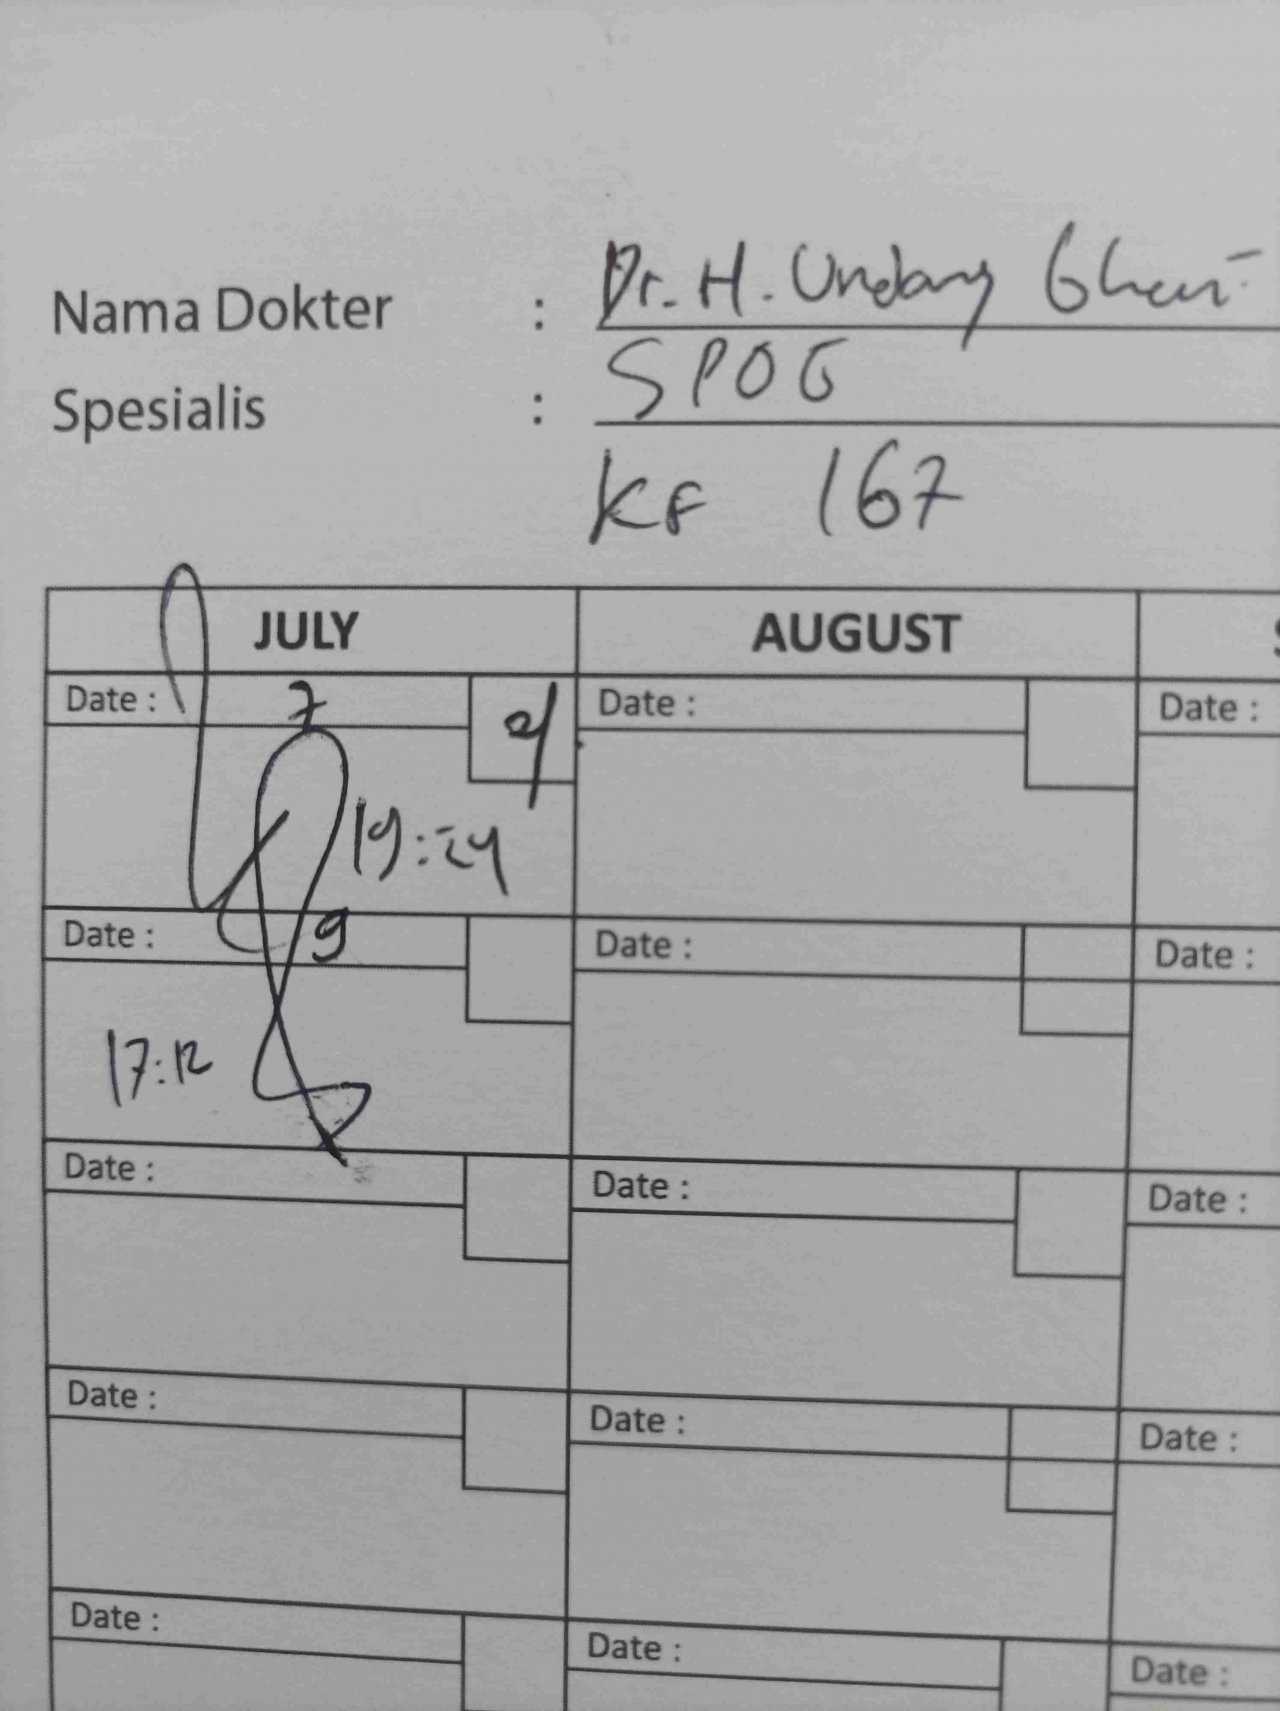 Nama Dokter : Dr. H. Undang Ghani
Spesialis : SPOG
KF 167
JULY AUGUST
Date : 7 Date : Date :
19:24
Date : 9 Date : Date :
17:12
Date : Date : Date :
Date : Date : Date :
Date : Date : Date :